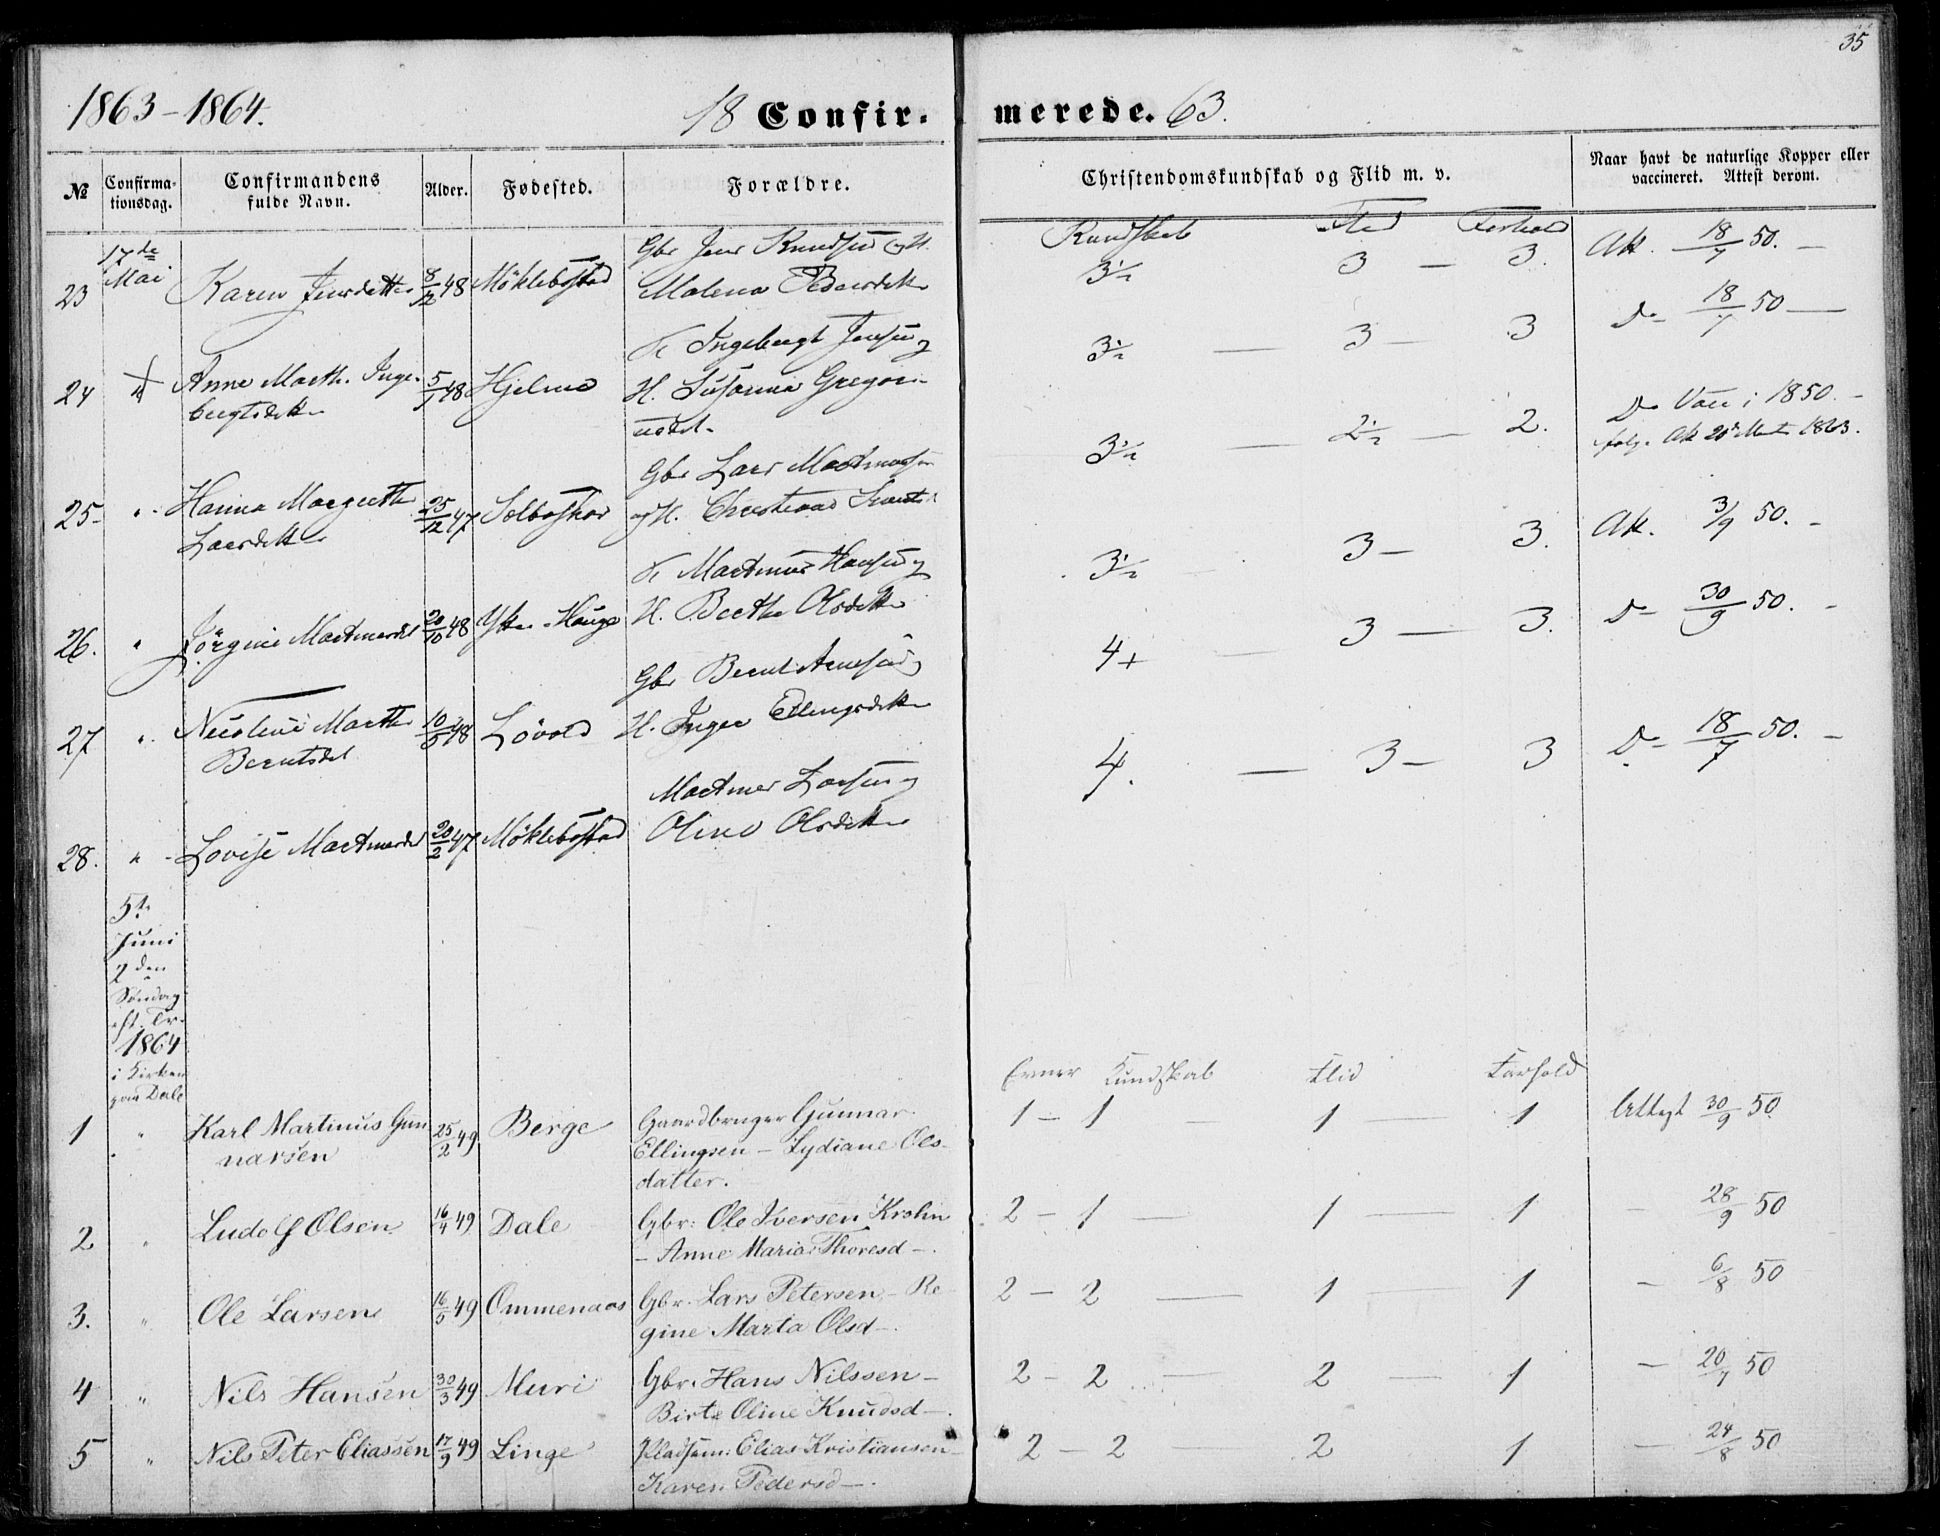 35
1863-1864.
18 Confirmerede. 63.
№ Confirmationsdag. Confirmandens fulde Navn. Alder. Fødested. Forældre. Christendomskundskab og Flid m. v. Naar havt de naturlige Kopper eller vaccineret. Attest derom.
Kundskab Flid Forhold
17de Mai
23 Karen Jensdatter 8/12 48 Möklebostad Gbr Jens Knudsen og H.
Malena Pedersdtr 3½ 3 — 3. Att. 18/7 50. —
24 Anne Marth. Inge-
bregtsdtr 5/1 48 Hjelme Ingebregt Jensen og
H. Susanna Gregori-
usdt. 3½ — 3 — 3 Do 18/7 50 —
25 Hanna Margrethe
Larsdtr 25/12 47 Solboskar Gbr Lars Martinusen
og H. 3½ — 2½ — 2. Do Vacc i 1850. -
følg. Att 1863.
26. Jörgine Martinusdt 20/10 48 Ytre-Hauge Martinus Hansen og
H. Berthe Olsdtr 3½ 3 — 3. Att. 3/9 50. -
27 Nicoline Marthe
Berntsdt 10/5 48 Lövold Gbr Bernt Arnesen og
H. Inger Ellingsdtr 4+ — 3 — 3. Do 30/9 50. -
28. Lovise Martinusdt 20/2 47 Möklebostad Martinus Larsen og
Oline Olsdtr 4. — 3 — 3 Do 18/7 50. -
5te
Juni
2den
Söndag
eft. Tr.
1864
i Kirken
paa Dale
Evner Kundskab Flid Forhold
1 " Karl Martinus Gun
narsen 25/2 49 Berge Gaardbruger Gunnar
Ellingsen — Lydiane Ols-
datter. 1 — 1 — 1 — 1 Attest 30/9 50
2 " Ludolf Olsen 16/4 49 Dale Gbr: Ole Iversen Krohn
- Anne Maria Thoresd -. 2 - 1 — 1 — 1 - 28/9 50
3. " Ole Larsen 16/5 49 Ommenaas Gbr. Lars Petersen - Re-
gine Marta Olsd-. 2 - 2 — 1 — 1 - 6/8 50
4 " Nils Hansen 30/3 49 Muri Gbr. Hans Nilssen -
Birte Oline Knudsd-. 2 - 2 — 2 — 1 - 20/7 50
5 " Nils Peter Eliassen 17/9 49 Linge Pladsem: Elias Kristiansen -
Karen Pedersd-. 2 - 2 2 1 - 24/8 50